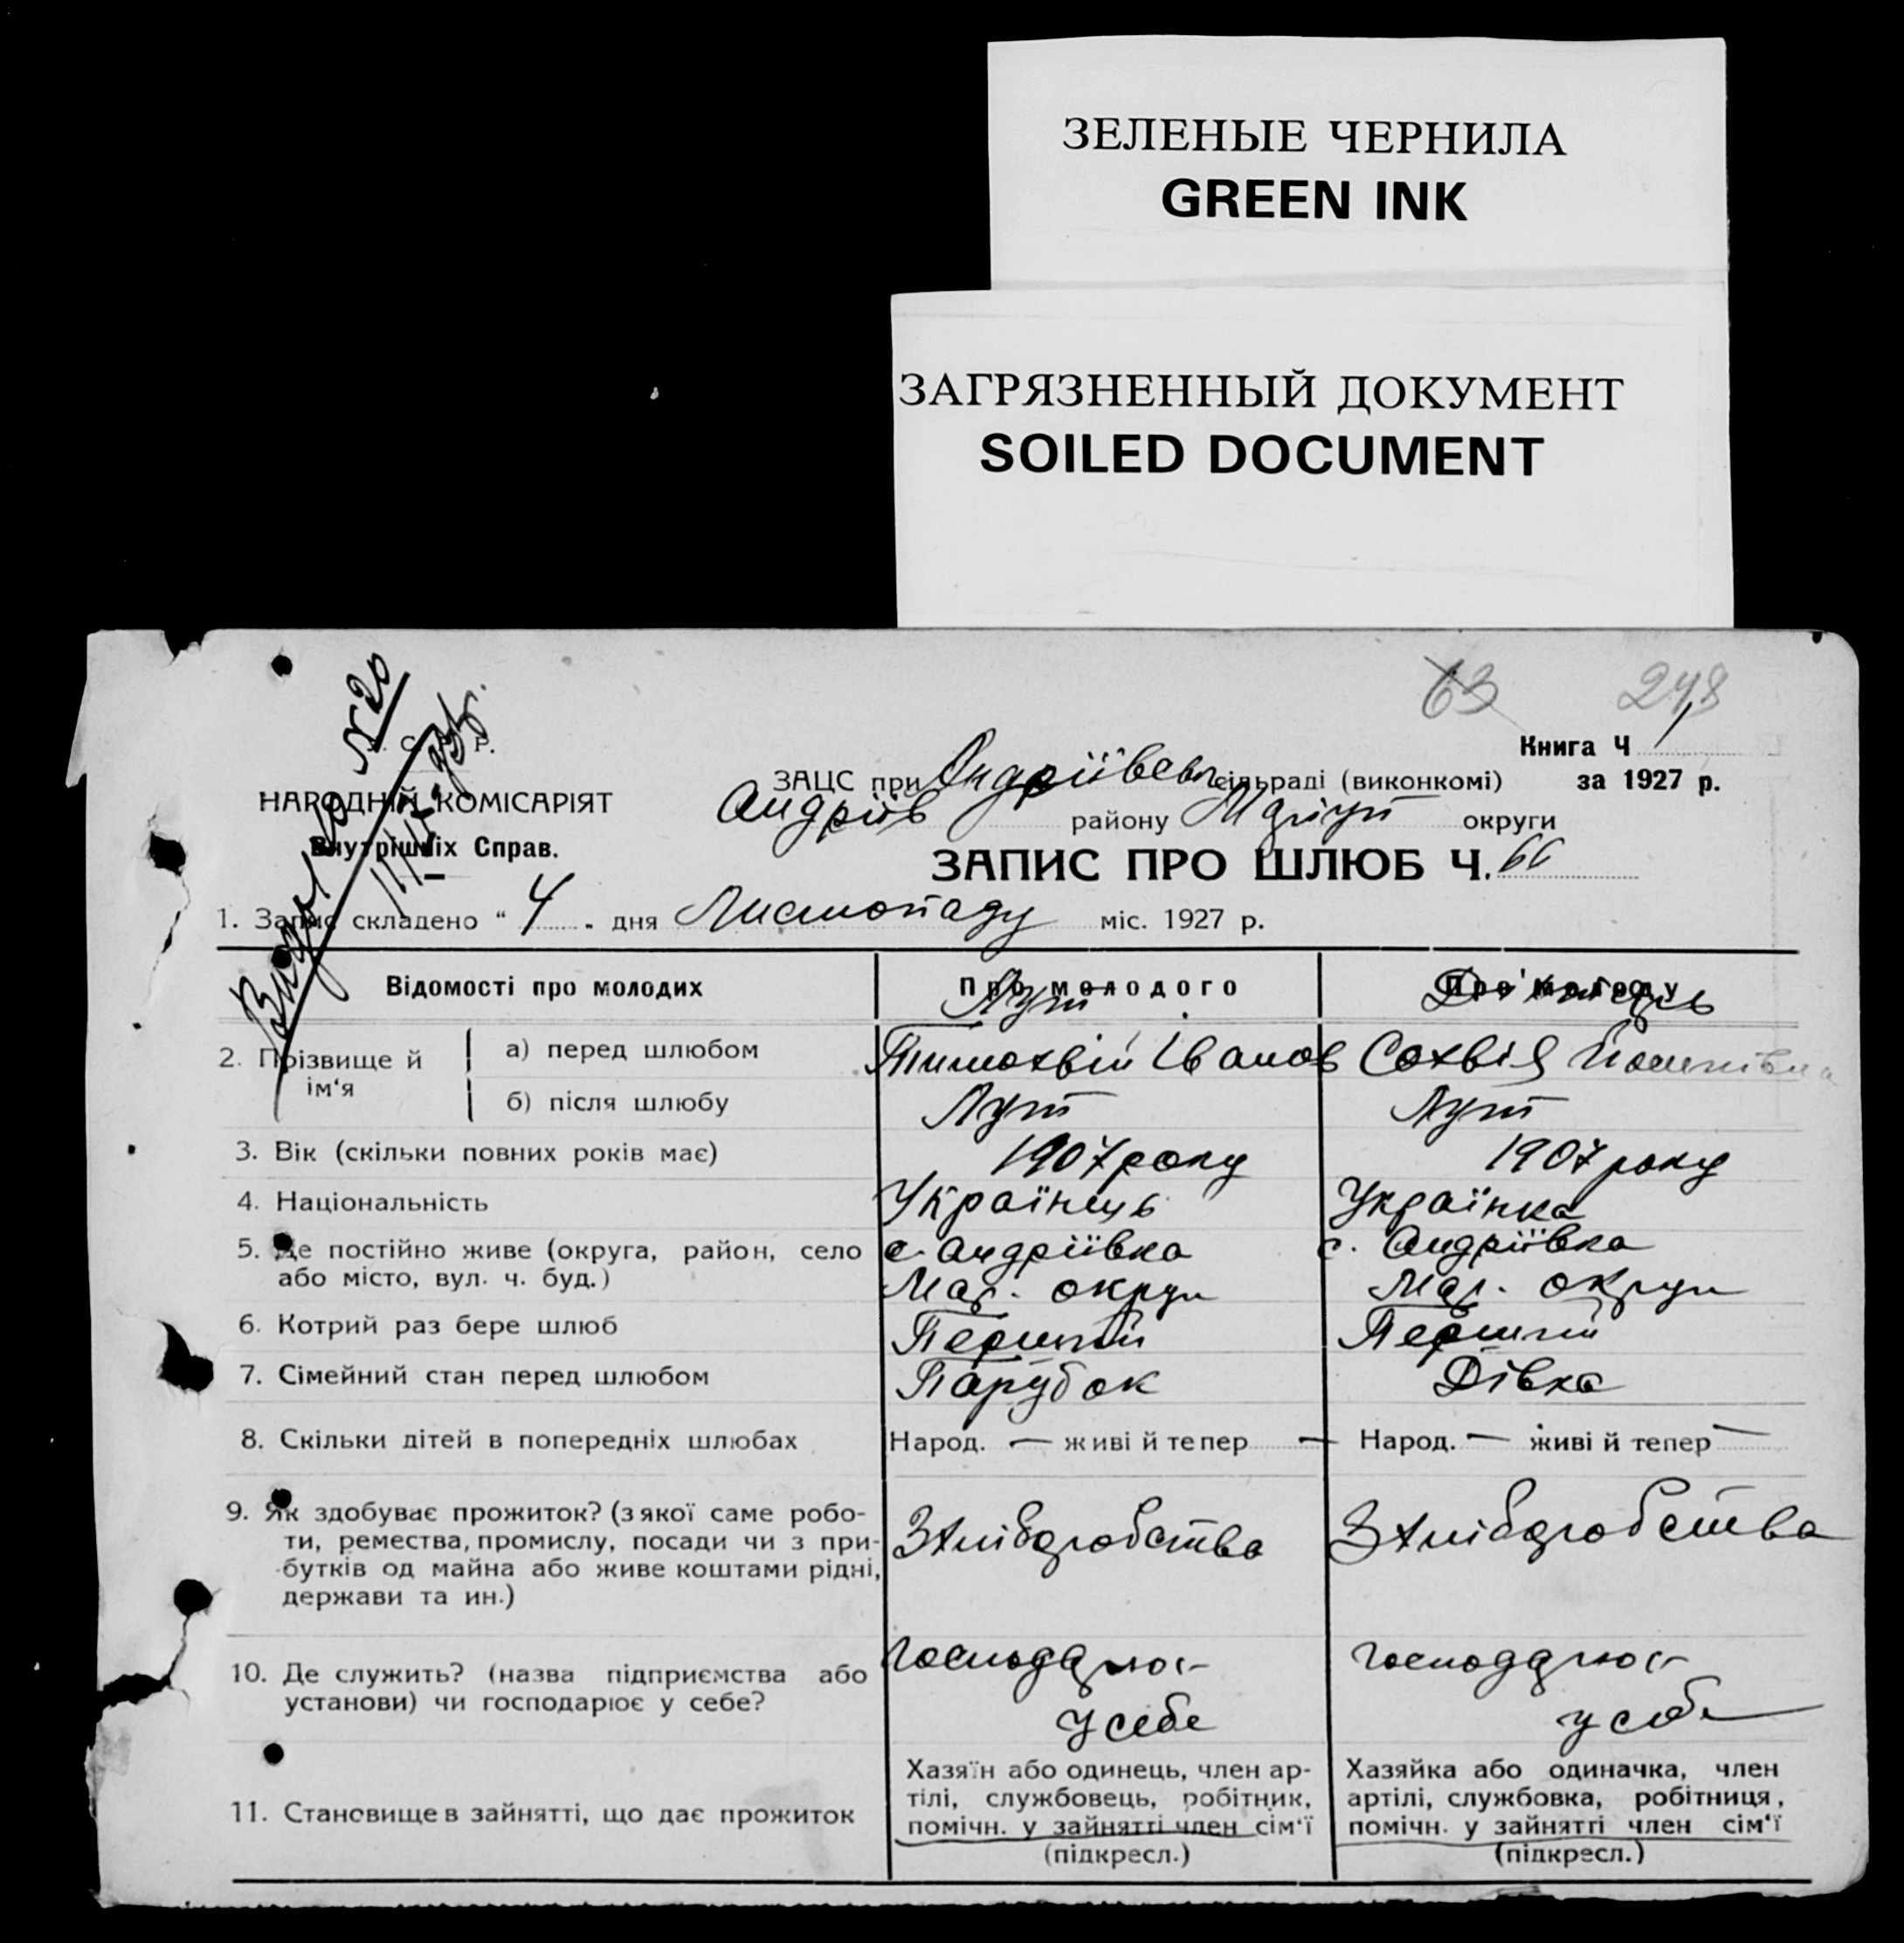 ЗЕЛЕНЫЕ ЧЕРНИЛА
GREEN INK
ЗАГРЯЗНЕННЫЙ ДОКУМЕНТ
SOILED DOCUMENT
63 248
№ 20
Книга Ч 1
НАРОДНІЙ КОМІСАРІЯТ
Внутрішніх Справ.
ЗАЦС при Андріївськ сільраді (виконкомі) за 1927 р.
Андріїв району Маріуп округи
ЗАПИС ПРО ШЛЮБ Ч. 66
1. Запис складено "4" дня Листопаду міс. 1927 р.
Відомості про молодих Про молодого Про молоду
2. Прізвище й ім‘я
а) перед шлюбом Лут Тимохвій Іванов Сохвія
б) після шлюбу Лут Лут
3. Вік (скільки повних років має) 1907 року 1907 року
4. Національність Українець Українка
5. Де постійно живе (округа, район, село с. Андріївка с. Андріївка
або місто, вул. ч. буд.) Мар. округи Мар. округи
6. Котрий раз бере шлюб Перший Перший
7. Сімейний стан перед шлюбом Парубок Дівка
8. Скільки дітей в попередніх шлюбах Народ. — живі й тепер — Народ. — живі й тепер —
9. Як здобуває прожиток? (з якої саме робо-
ти, ремества, промислу, посади чи з при- З хліборобства З хліборобства
бутків од майна або живе коштами рідні,
держави та ин.)
10. Де служить? (назва підприємства або господарює господарює
установи) чи господарює у себе? у себе у себе
11. Становище в зайнятті, що дає прожиток
Хазяїн або одинець, член ар-
тілі, службовець, робітник,
помічн. у зайнятті член сім‘ї
(підкресл.)
Хазяйка або одиначка, член
артілі, службовка, робітниця,
помічн. у зайнятті член сім‘ї
(підкресл.)